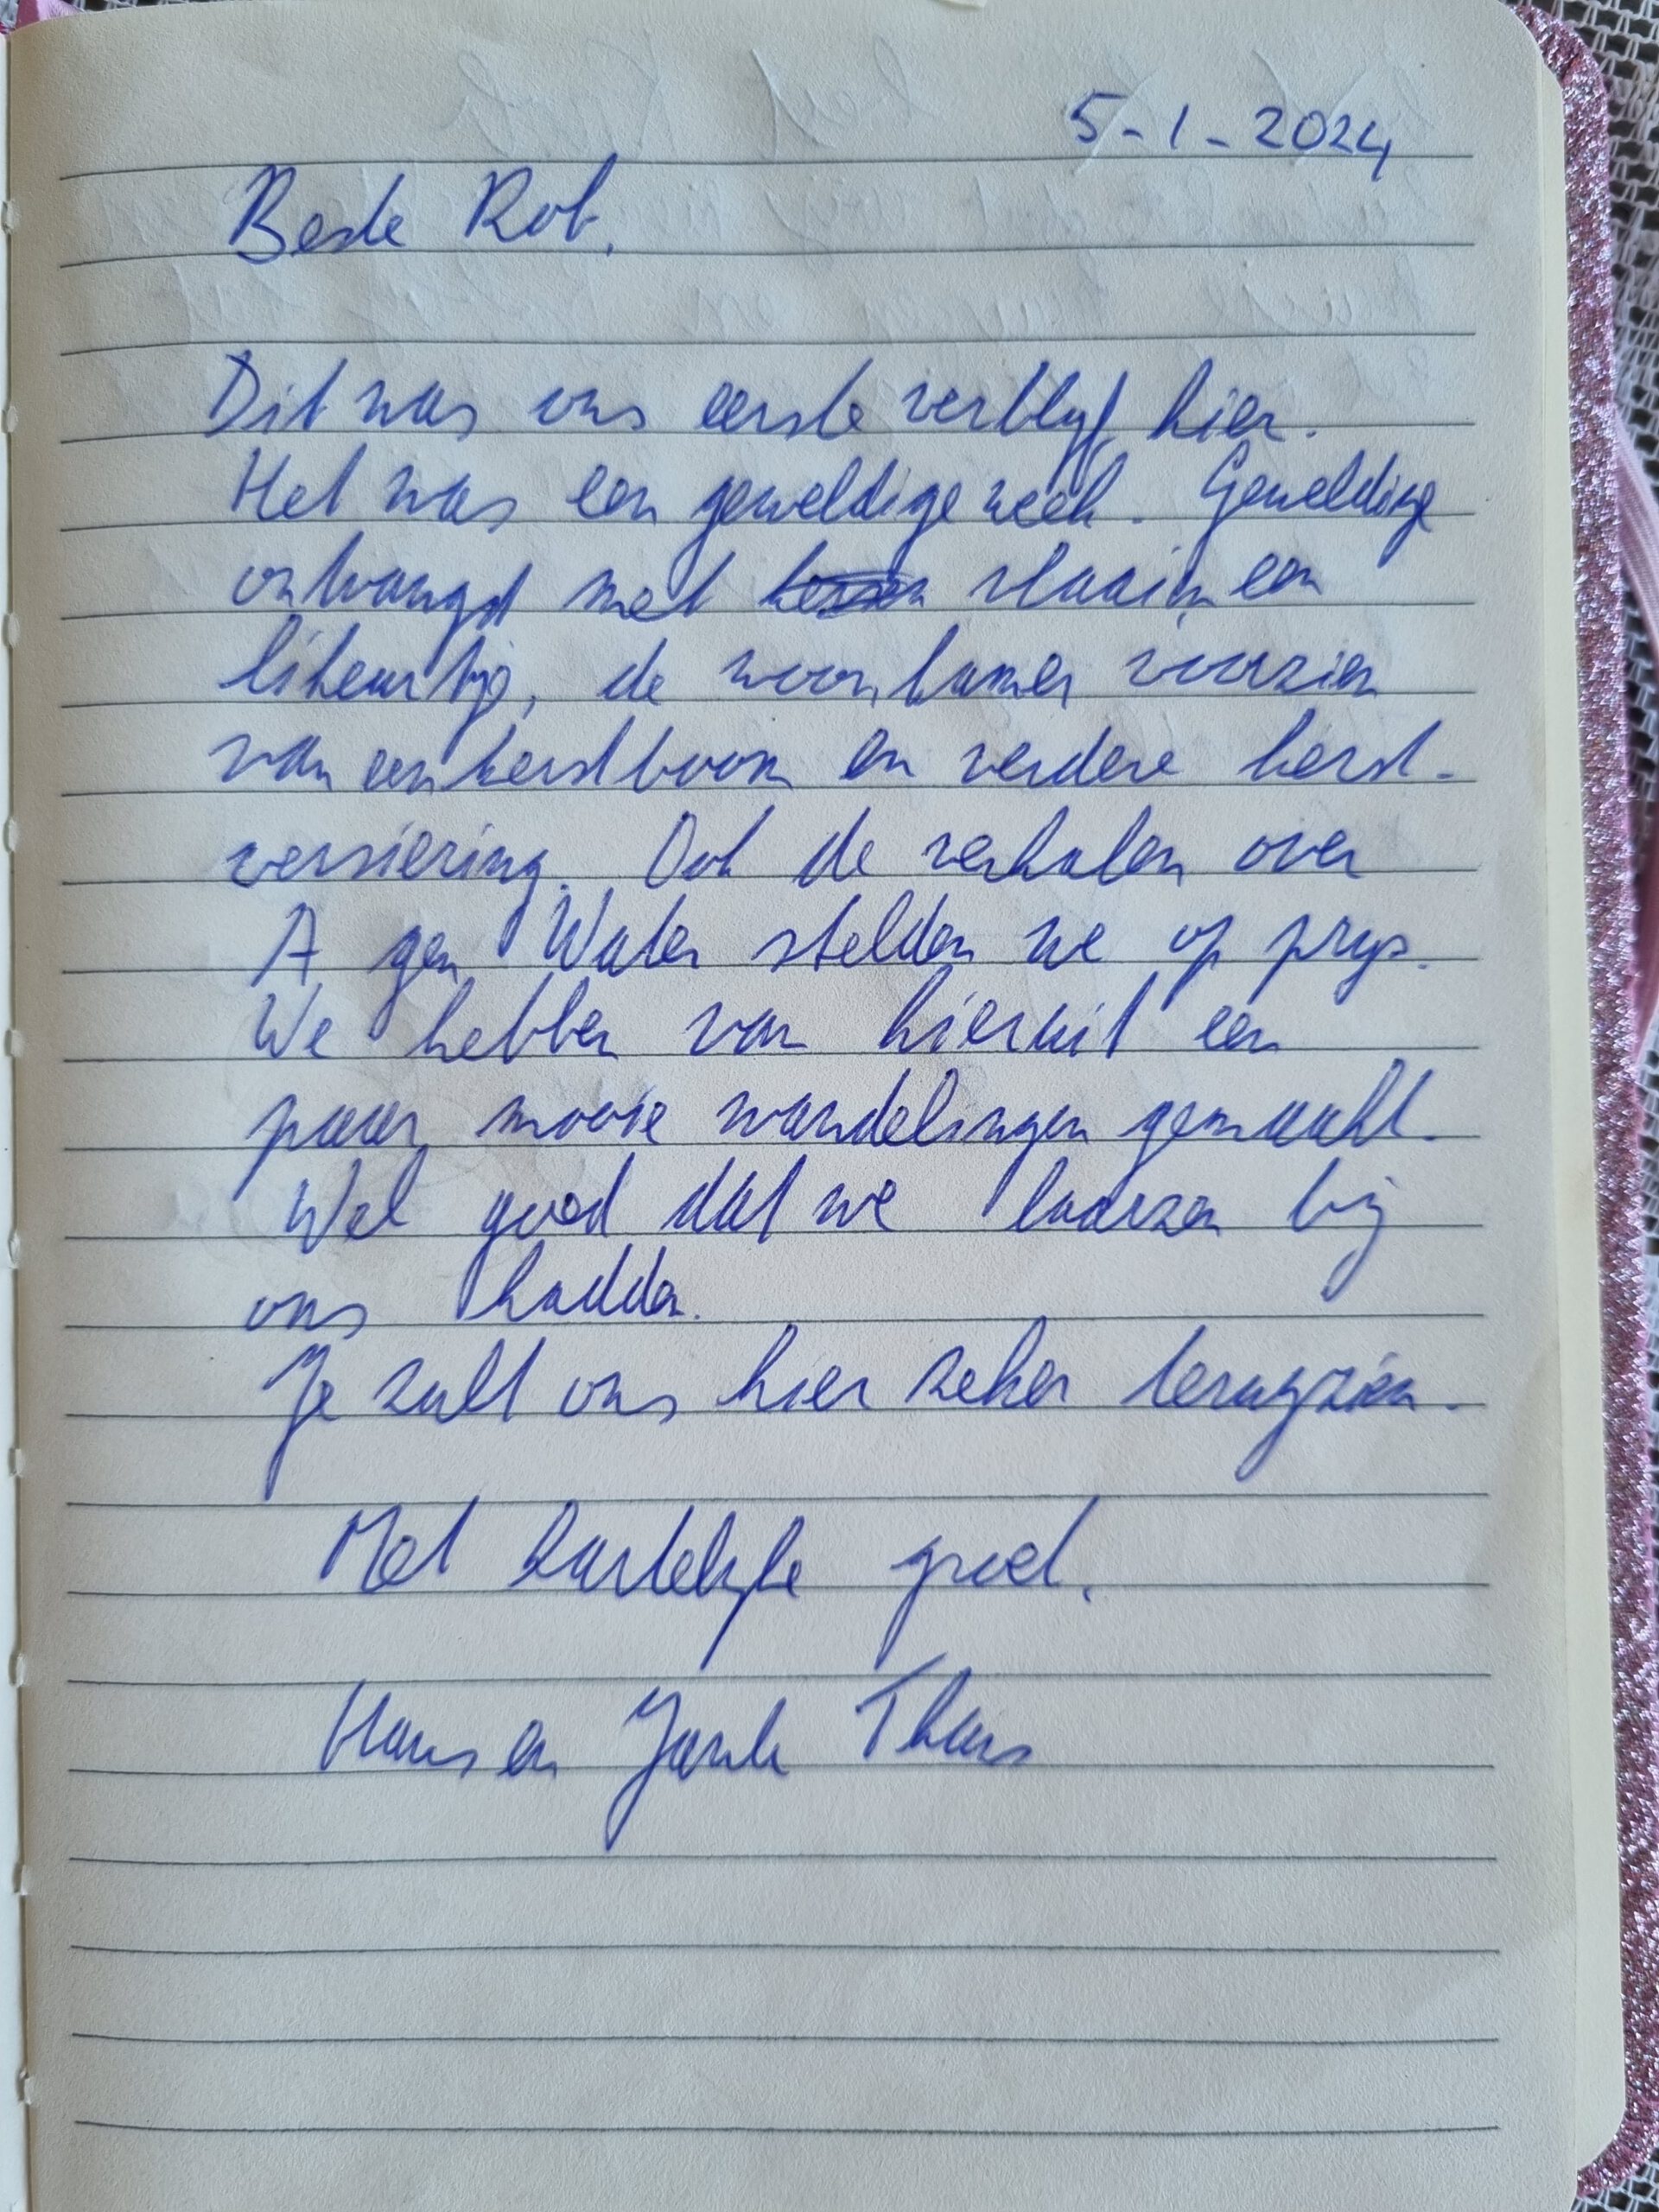 5-1-2024
Beste Rob,
Dit was ons eerste verblijf hier.
Het was een geweldige week. Geweldige
ontvangst met vlaai, een
likeurtje, de woonkamer voorzien
van een kerstboom en verdere kerst-
versiering. Ook de verhalen over
A gen Water stelden we op prijs.
We hebben van hieruit een
paar mooie wandelingen gemaakt.
Wel goed dat we laarzen bij
ons hadden.
Je zult ons hier zeker terugzien.
Met hartelijke groet,
Hans en